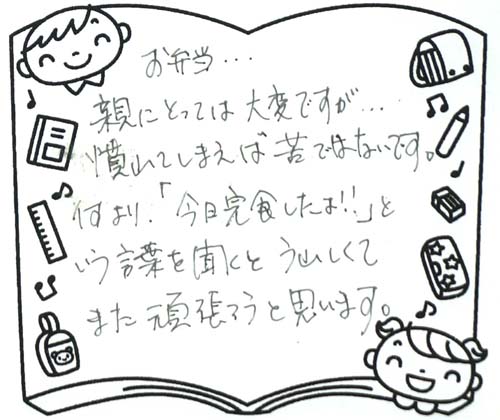 お弁当…
親にとっては大変ですが…
慣れてしまえば苦ではないです。
何より、「今日完食したよ!!」と
いう言葉を聞くとうれしくて
また頑張ろうと思います。